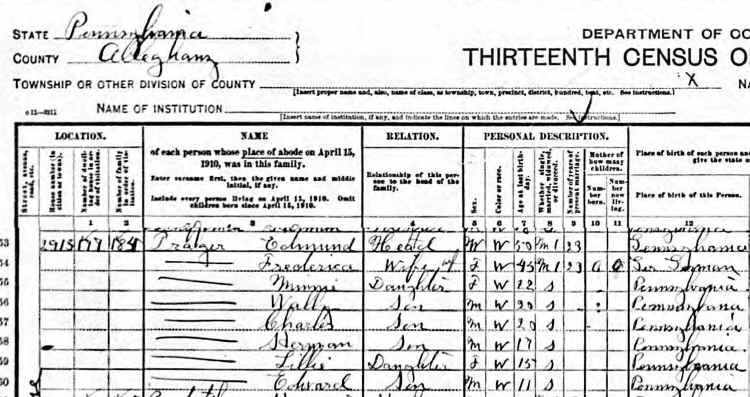 STATE Pennsylvania
COUNTY Allegheny
DEPARTMENT OF CO
THIRTEENTH CENSUS O
TOWNSHIP OR OTHER DIVISION OF COUNTY X NA
[Insert proper name and, also, name of class, as township, town, precinct, district, hundred, beat, etc. See instructions.]
NAME OF INSTITUTION
[Insert name of institution, if any, and indicate the lines on which the entries are made. See instructions.]
LOCATION. NAME RELATION. PERSONAL DESCRIPTION.
Street, avenue, road, etc.
House number (in cities or towns).
Number of dwelling house in order of visitation.
Number of family in order of visitation.
of each person whose place of abode on April 15, 1910, was in this family.
Enter surname first, then the given name and middle initial, if any.
Include every person living on April 15, 1910. Omit children born since April 15, 1910.
Relationship of this person to the head of the family.
Sex.
Color or race.
Age at last birthday.
Whether single, married, widowed, or divorced.
Number of years of present marriage.
Mother of how many children.
Number born.
Number now living.
Place of birth of each person and
give the state
Place of birth of this Person.
1 2 3 4 5 6 7 8 9 10 11 12
53 2915 177 184 Edmund Head M W 50 M1 23 Pennsylvania
54 Frederica Wife F W 45 M1 23 Ger German
55 Minnie Daughter F W 22 S Pennsylvania
56 Son M W 20 S Pennsylvania
57 Charles Son M W 20 S Pennsylvania
58 Herman Son M W 17 S Pennsylvania
59 Lillie Daughter F W 15 S Pennsylvania
60 Edward Son M W 11 S Pennsylvania